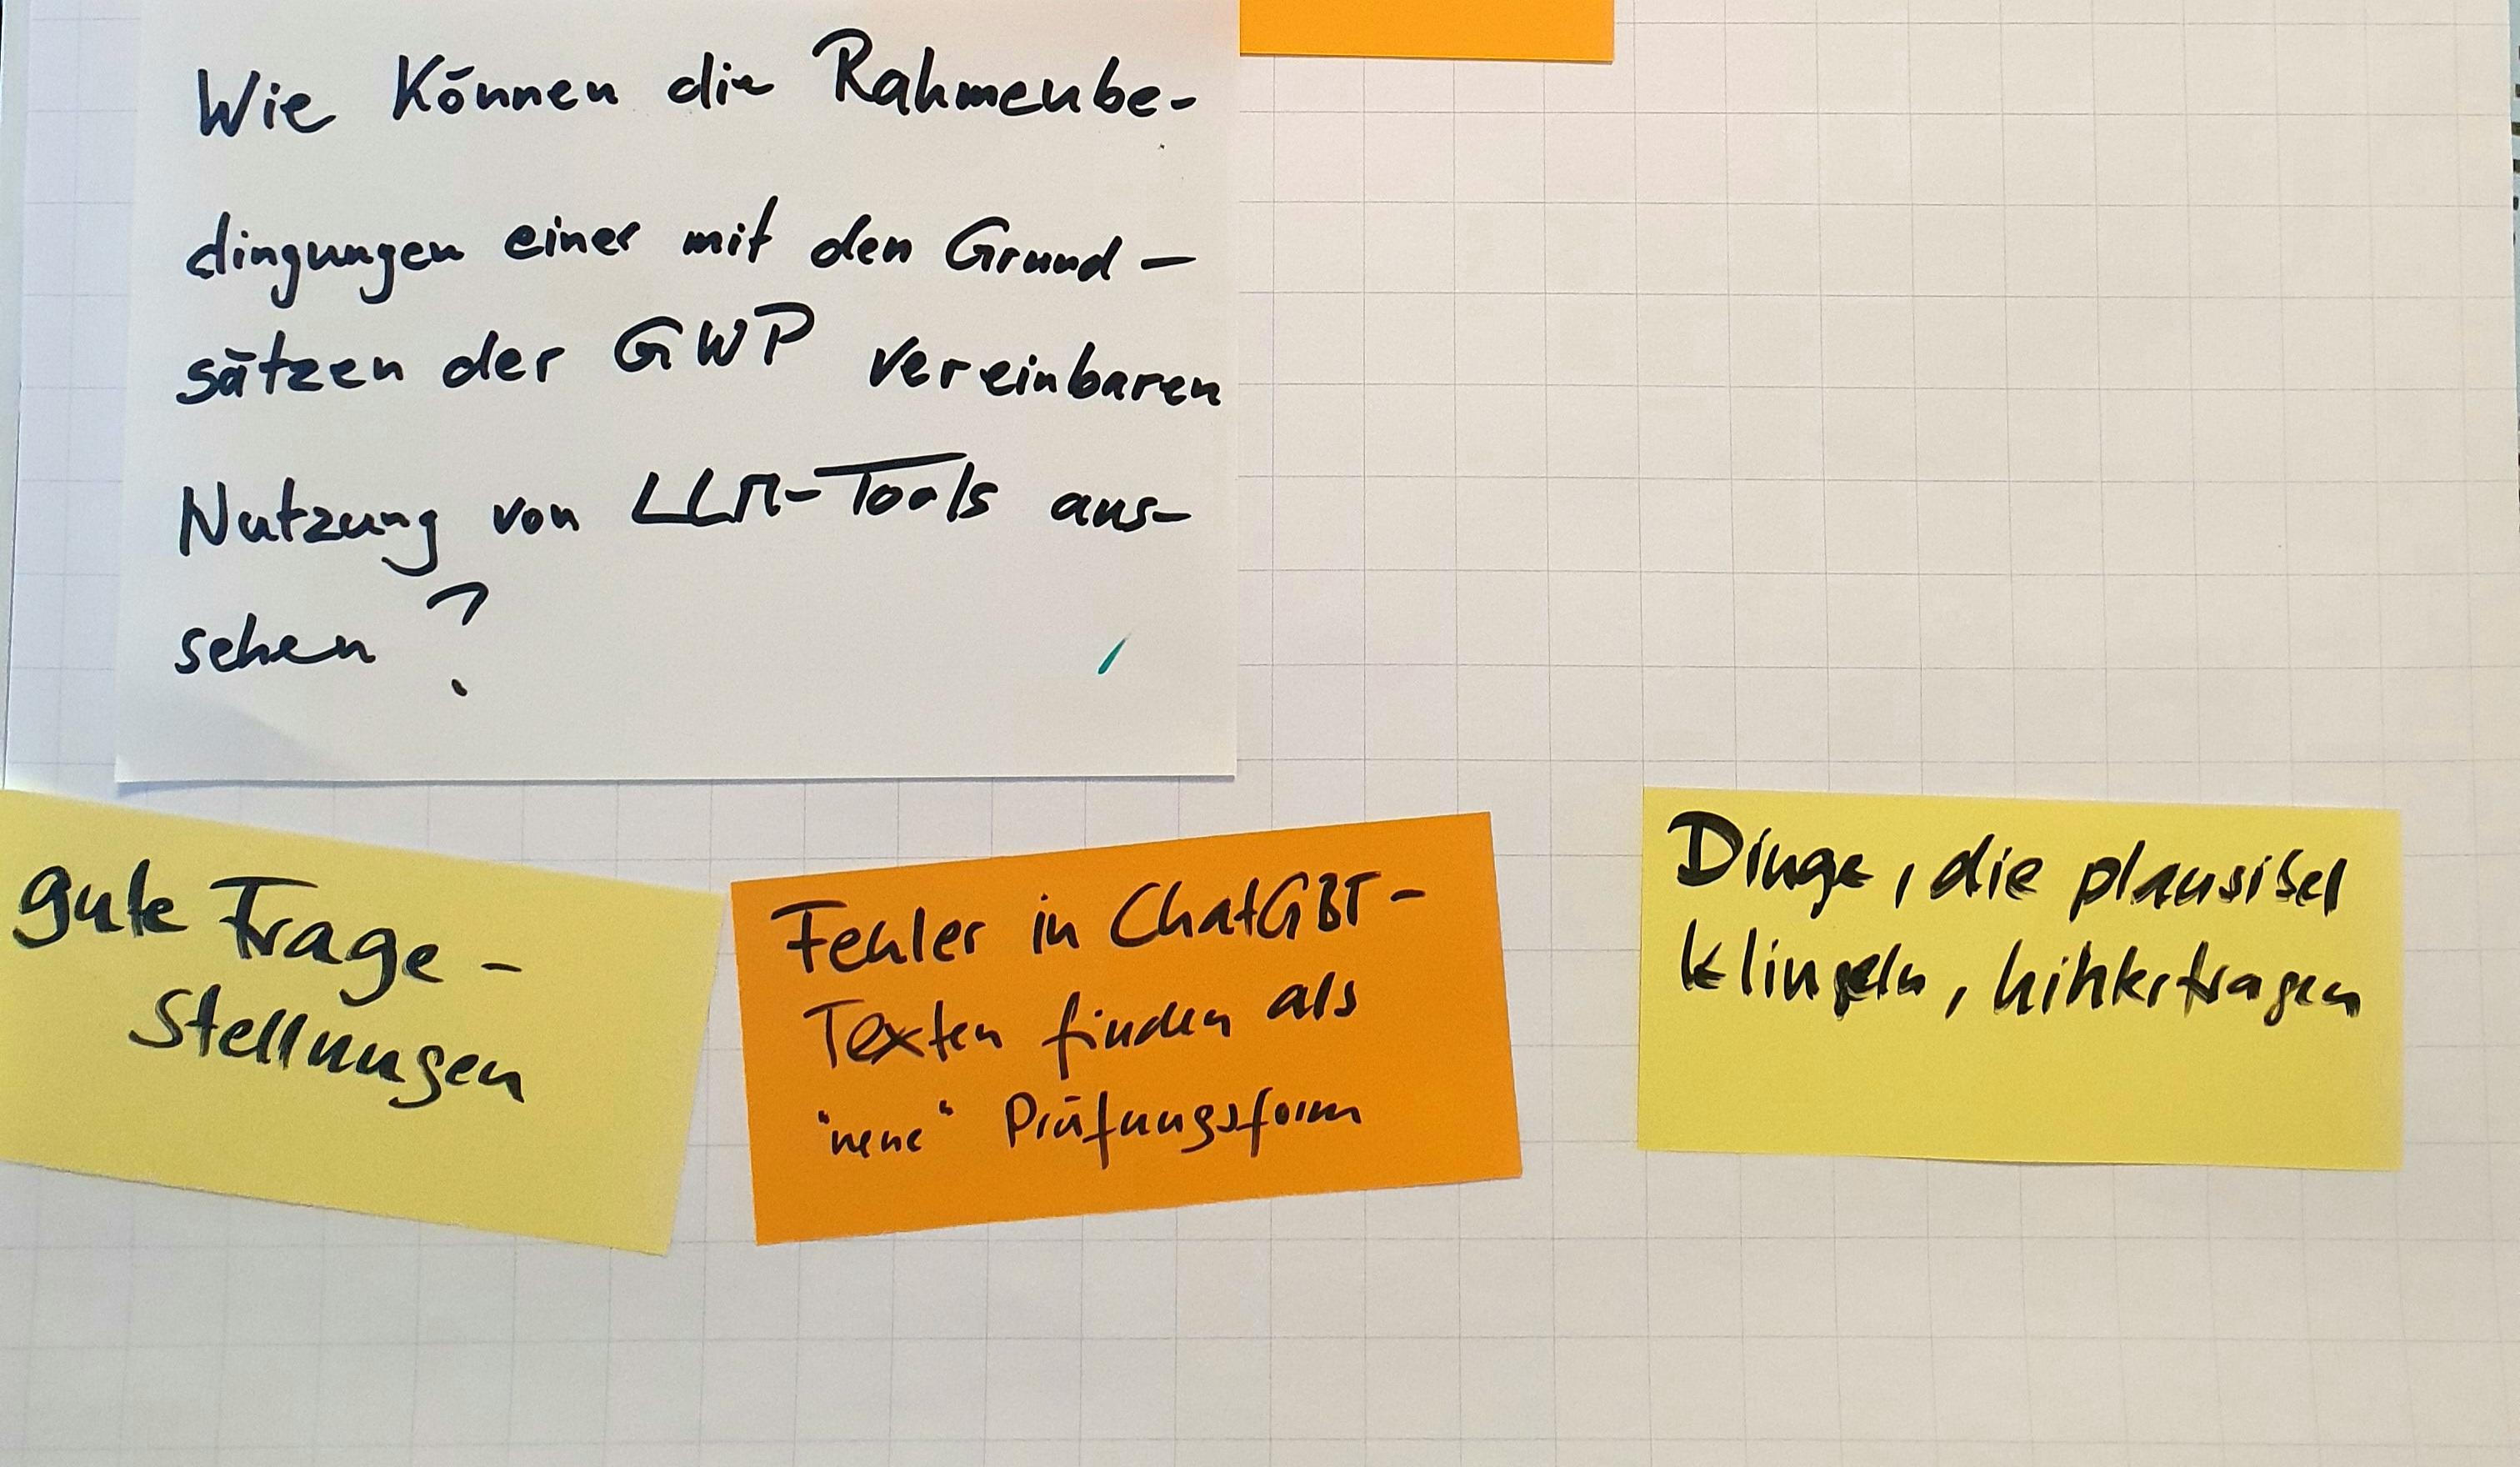 Wie können die Rahmenbe-
dingungen einer mit den Grund-
sätzen der GWP vereinbaren
Nutzung von LLM-Tools aus-
sehen?
gute Frage-
stellungen
Fehler in ChatGBT-
Texten finden als
"neue" Prüfungsform
Dinge, die plausibel
klingeln, hinterfragen